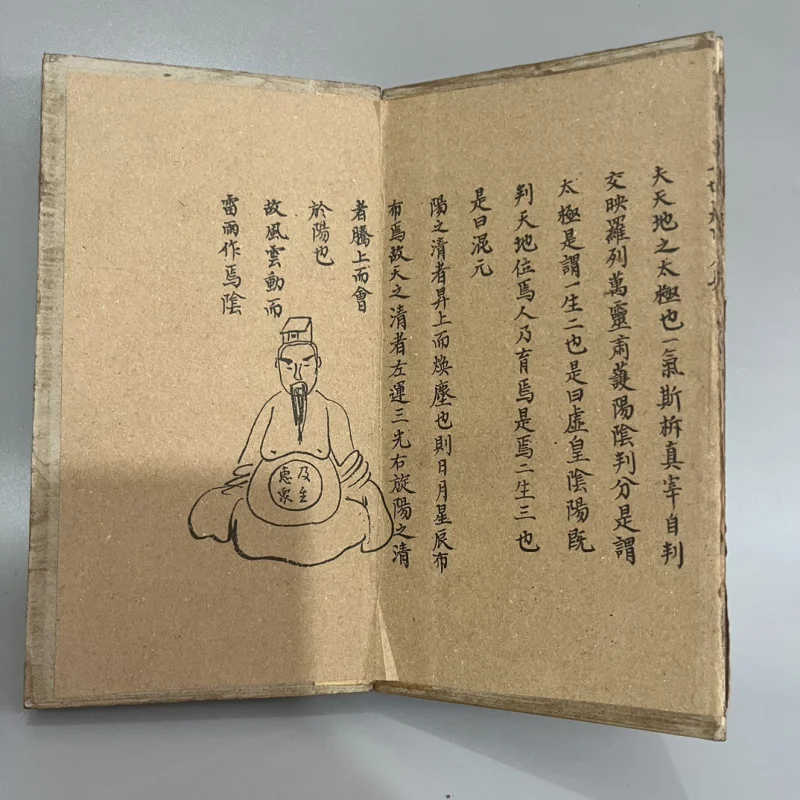 夫天地之太極也一氣斯柝真宰自判
交映羅列萬靈肅護陽陰判分是謂
太極是謂一生二也是曰虛皇陰陽既
判天地位焉人乃育焉是焉二生三也
是曰混元
陽之清者昇上而煥塵也則日月星辰布
布焉故天之清者左運三光右旋陽之清
者騰上而會
於陽也
故風雲動而
雷雨作焉陰